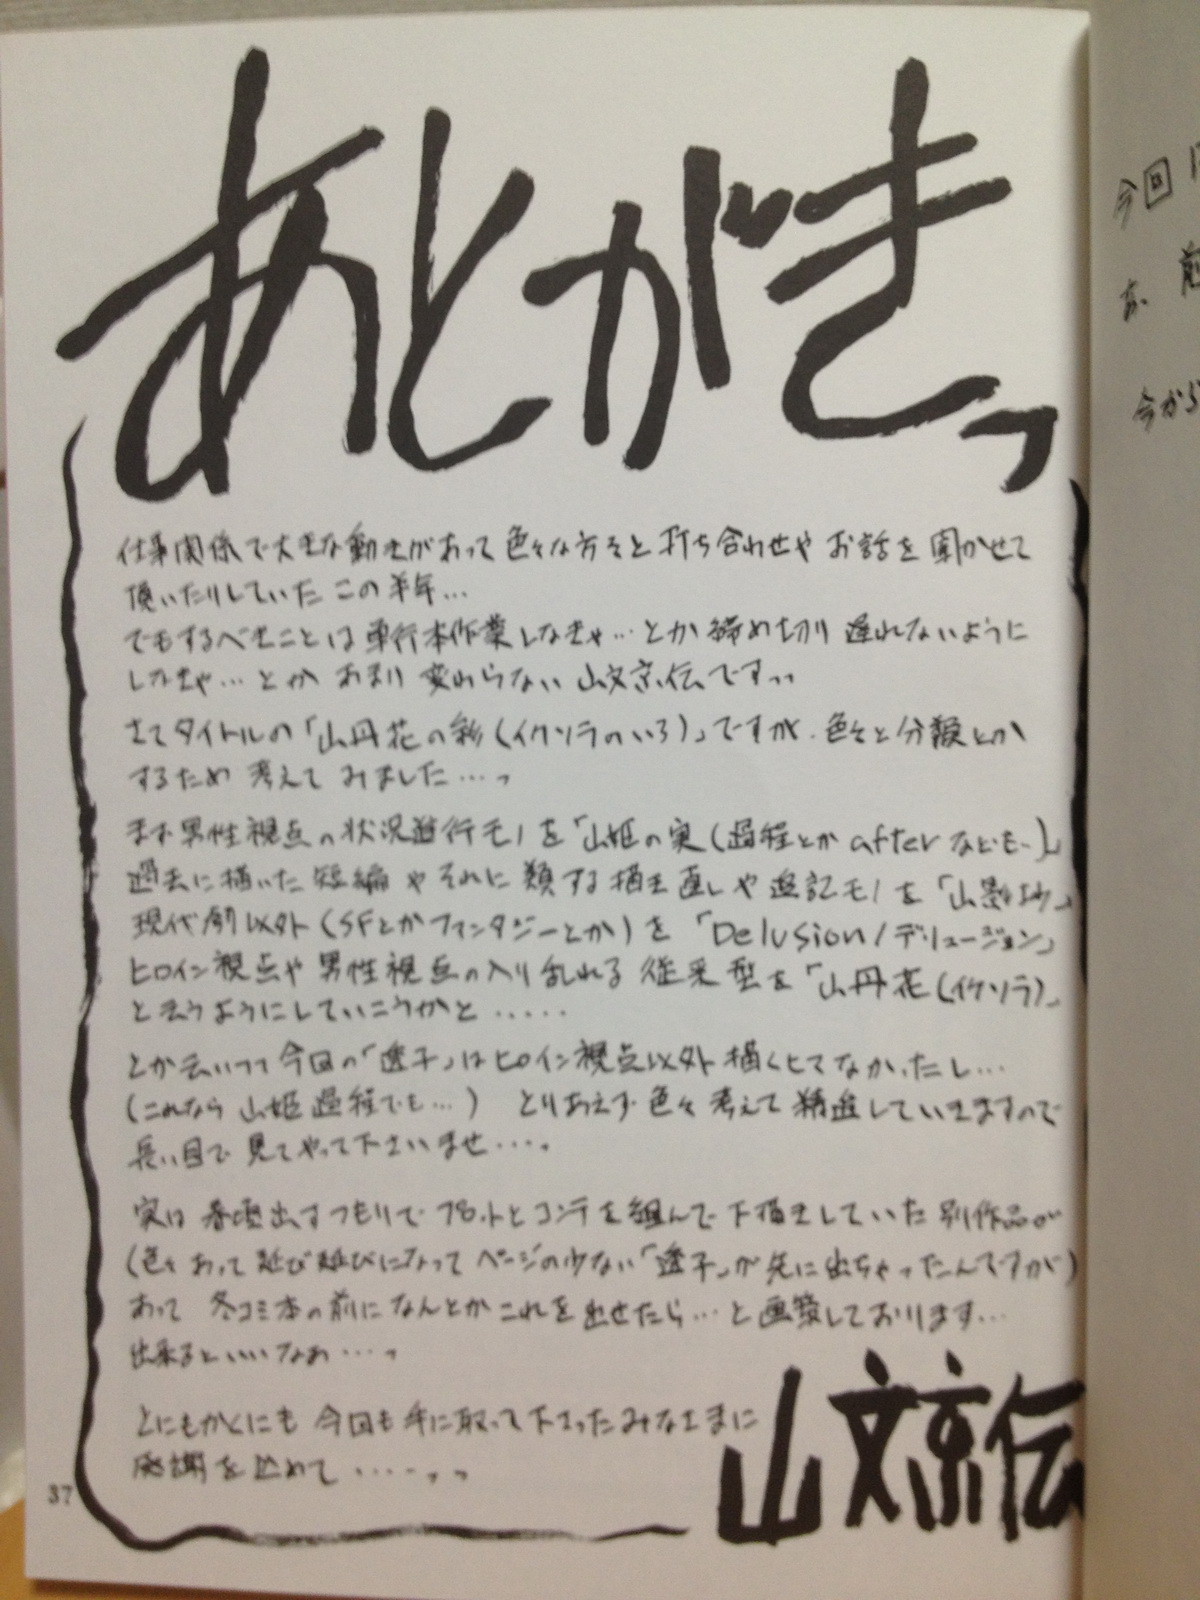 あとがきっ
仕事関係で大きな動きがあって色々な方々と打ち合わせやお話を聞かせて
頂いたりしていたこの半年…
でもするべきことは単行本作業しなきゃ…とか締め切り遅れないように
しなきゃ…とかあまり変わらない山文京伝ですっっ
さてタイトルの「山丹花の彩(イケソラのいろ)」ですが、色々と分類とか
するため考えてみました…っ
まず男性視点の状況進行モノを「山姫の実(過程とかafterなども…)」
過去に描いた短編やそれに類する描き直しや追記モノを「山影抄」
現代劇以外(SFとかファンタジーとか)を「Delusion/デリュージョン」
ヒロイン視点や男性視点の入り乱れる従来型を「山丹花(イケソラ)」
と云うようにしていこうかと.....
とか云いつつ今回の「透子」はヒロイン視点以外描くヒマなかったし…
(これなら山姫過程でも…) とりあえず色々考えて精進していきますので
長い目で見てやって下さいませ・・・・。
実は春頃出すつもりでプロットとコンテを組んで下描きしていた別作品が
(色々あって延び延びになってページの少ない「透子」が先に出ちゃったんですが)
あって 冬コミ本の前になんとかこれを出せたら…と画策しております…
出来るといいなぁ…っ
とにもかくにも今回も手に取って下さったみなさまに
感謝を込めて・・・・っっ
山文京伝
37
今回
今から